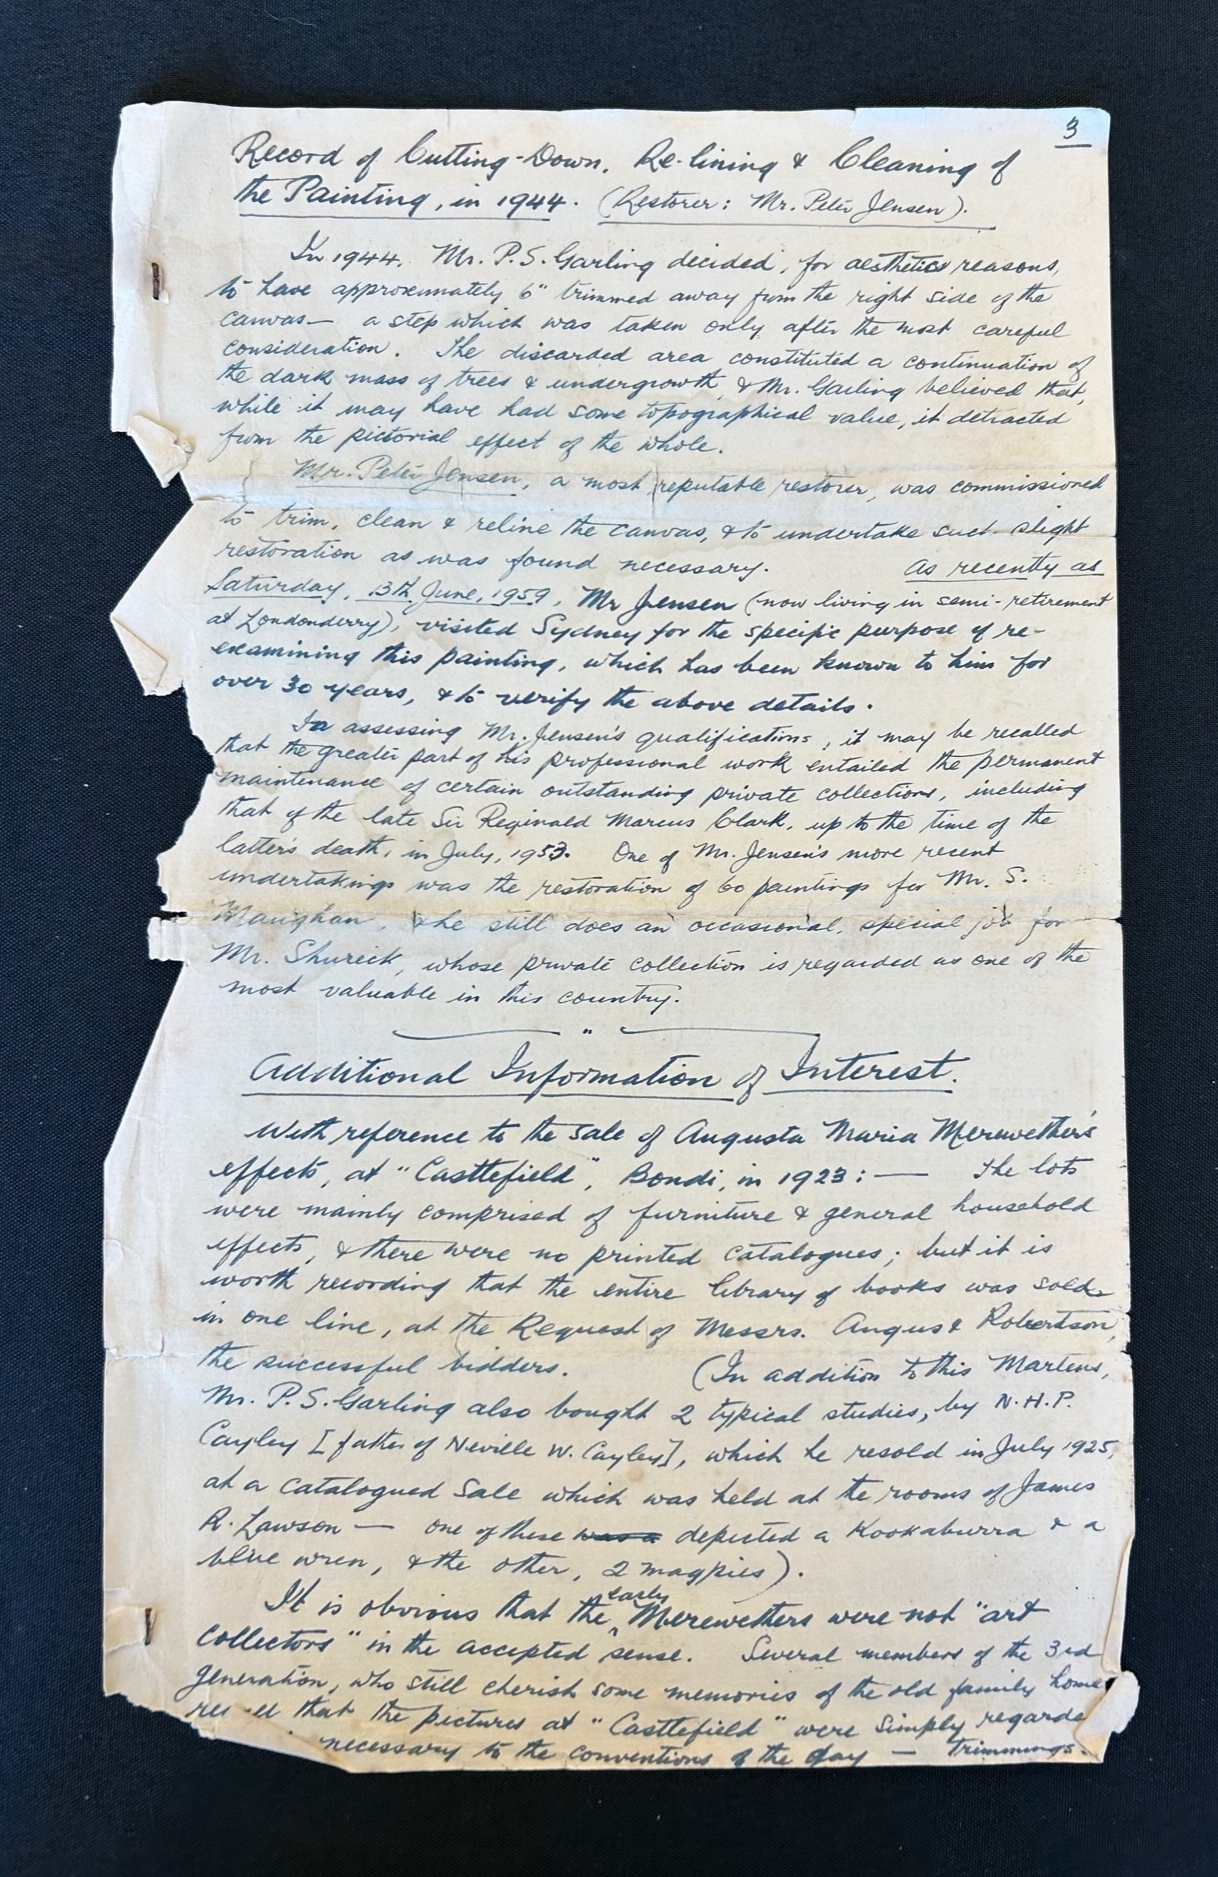 3
Record of Cutting-Down, Re-lining & Cleaning of
the Painting, in 1944. (Restorer: Mr. Peter Jensen).
In 1944, Mr. P.S. Garling decided, for aesthetic reasons,
to have approximately 6" trimmed away from the right side of the
canvas — a step which was taken only after the most careful
consideration. The discarded area constituted a continuation of
the dark mass of trees & undergrowth, & Mr. Garling believed that,
while it may have had some topographical value, it detracted
from the pictorial effect of the whole.
Mr. Peter Jensen, a most reputable restorer, was commissioned
to trim, clean & reline the canvas, & to undertake such slight
restoration as was found necessary. As recently as
Saturday, 13th June, 1959, Mr Jensen (now living in semi-retirement
at Londonderry), visited Sydney for the specific purpose of re-
examining this painting, which has been known to him for
over 30 years, & to verify the above details.
In assessing Mr. Jensen's qualifications, it may be recalled
that the greater part of his professional work entailed the permanent
maintenance of certain outstanding private collections, including
that of the late Sir Reginald Marcus Clark, up to the time of the
latter's death, in July, 1953. One of Mr. Jensen's more recent
undertakings was the restoration of 60 paintings for Mr. S.
Maughan, & he still does an occasional, special job for
Mr. Shureck, whose private collection is regarded as one of the
most valuable in this country.
"
Additional Information of Interest.
With reference to the sale of Augusta Maria Merewether's
effects, at "Castlefield", Bondi, in 1923: — The lots
were mainly comprised of furniture & general household
effects, & there were no printed catalogues; but it is
worth recording that the entire library of books was sold
in one line, at the Request of Messrs. Angus & Robertson,
the successful bidders. (In addition to this Martens,
Mr. P.S. Garling also bought 2 typical studies, by N.H.P.
Cayley [father of Neville W. Cayley], which he resold in July 1925,
at a catalogued Sale which was held at the rooms of James
R. Lawson — one of these was a depicted a Kookaburra & a
blue wren, & the other, 2 magpies).
It is obvious that the early Merewethers were not "art
collectors" in the accepted sense. Several members of the 3rd
generation, who still cherish some memories of the old family home
that the pictures at "Castlefield" were simply regarde
necessary to the conventions of the day — trimmings.